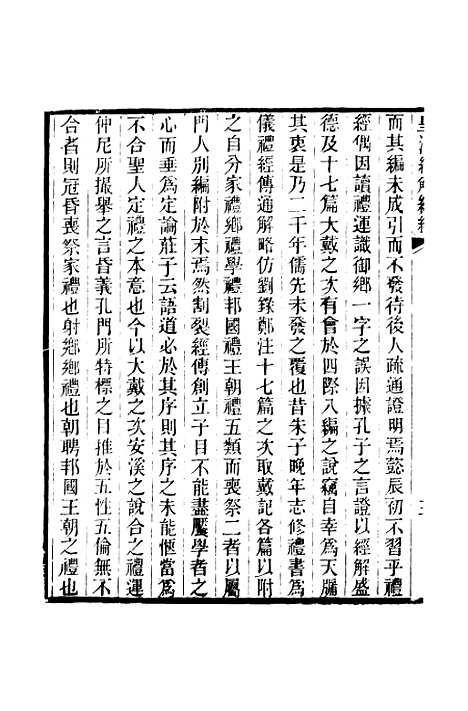 而其編未成引而不發待後人疏通證明焉懿辰初不習乎禮
經偶因讀禮運識御鄉一字之誤因據孔子之言證以經解盛
德及十七篇大戴之次有會於四際八編之說竊自幸爲天牖
其衷是乃二千年儒先未發之覆也昔朱子晚年志修禮書爲
儀禮經傳通解略仿劉錄鄭注十七篇之次取戴記各篇以附
之自分家禮鄉禮學禮邦國禮王朝禮五類而喪祭二者以屬
門人別編附於末焉然割裂經傳創立子目不能盡饜學者之
心而垂爲定論莊子云語道必於其序則其序之未能愜當爲
不合聖人定禮之本意也今以大戴之次安溪之說合之禮運
仲尼所撮舉之言昏義孔門所特標之目推於五性五倫無不
合者則冠昏喪祭家禮也射鄉鄉禮也朝聘邦國王朝之禮也